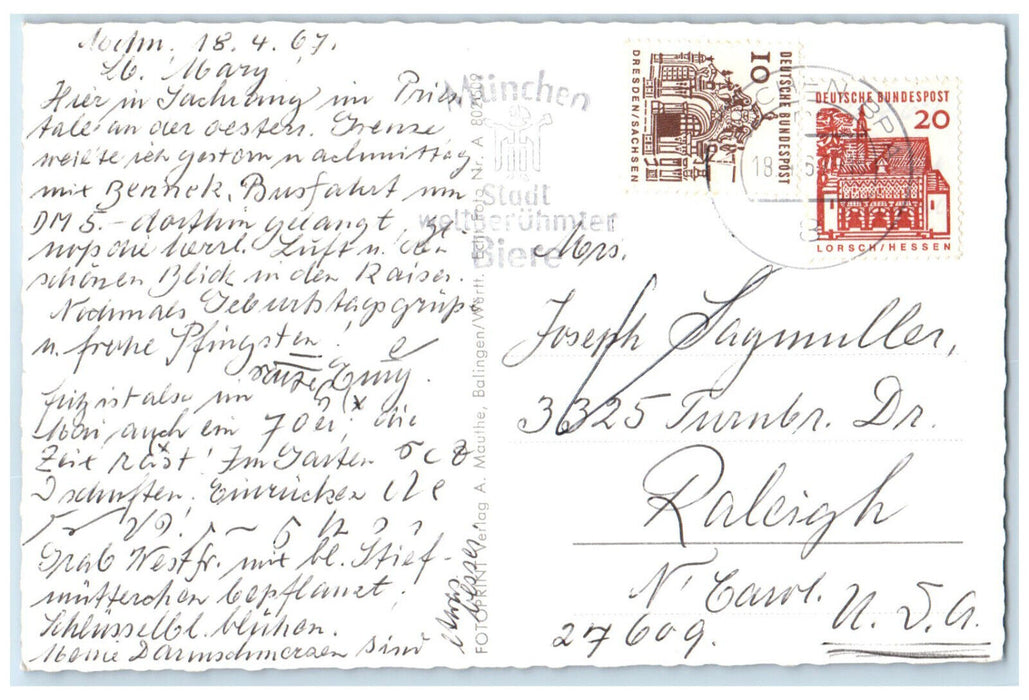 Mchn. 18.4.67.
Lb. Mary!
Hier in Sachrang im Prien-
tale an der oesterr. Grenze
weilte ich gestern nachmittag
mit Bennek. Busfahrt um
DM 5.- dorthin gelangt, ge
noß die herrl. Luft u. den
schönen Blick in den Kaiser.
Nochmals Geburtstagsgrüße
u. frohe Pfingsten!
Fritz ist also im
Mai auch ein 70er, die
Zeit rast! Im Garten
Grab Westfr. mit bl. Stief-
mütterchen bepflanzt,
Schlüsselbl. blühen.
Meine Darmschmerzen sind
etwas besser.
FOTOPRINT Verlag A. Mauthe, Balingen/Württ. Echt Foto Nr. A 802009
München
Stadt
weltberühmter
Biere
10
DEUTSCHE BUNDESPOST
DRESDEN/SACHSEN
DEUTSCHE BUNDESPOST
20
LORSCH/HESSEN
Mrs.
Joseph Sagmuller,
3325 Turnbr. Dr.
Raleigh
N' Carol.
27609.
U.S.A.